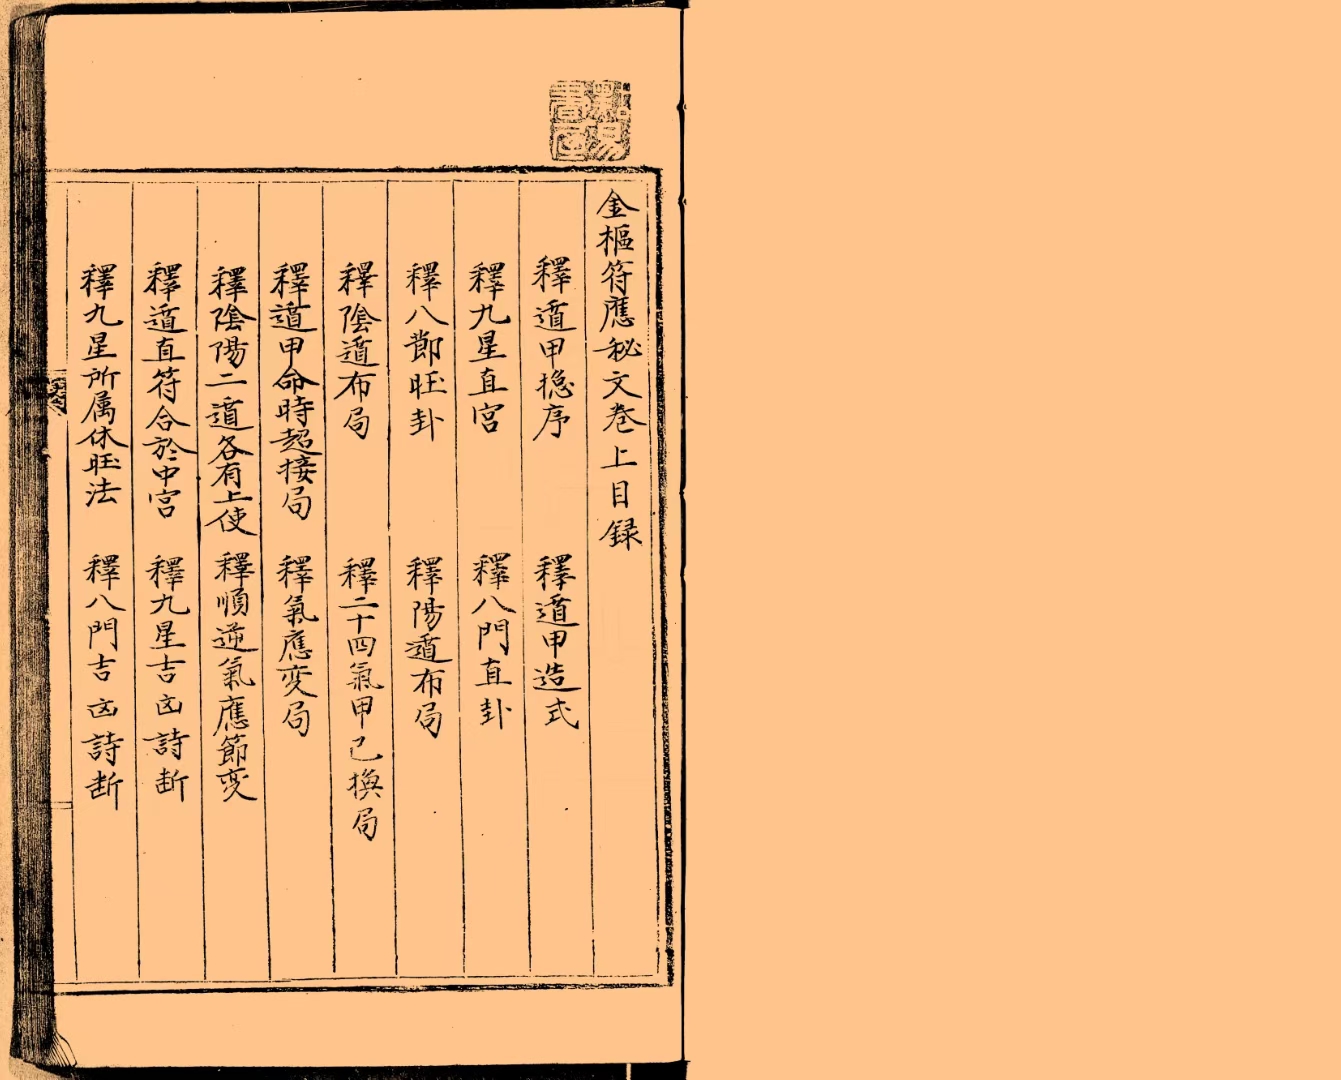 金樞符應秘文卷上目録
釋遁甲揔序 釋遁甲造式
釋九星直宮 釋八門直卦
釋八節旺卦 釋陽遁布局
釋陰遁布局 釋二十四氣甲己換局
釋遁甲命時超接局 釋氣應変局
釋陰陽二遁各有上使 釋順逆氣應節变
釋遁直符合於中宮 釋九星吉凶詩断
釋九星所属休旺法 釋八門吉凶詩断